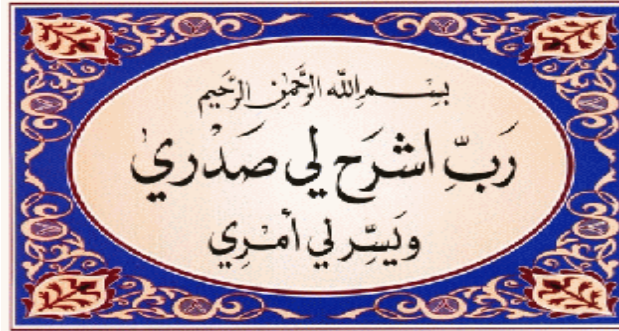 بسم الله الرحمن الرحيم
رَبِّ اشرَح لي صَدْري
ويَسِّر لي أمْرِي